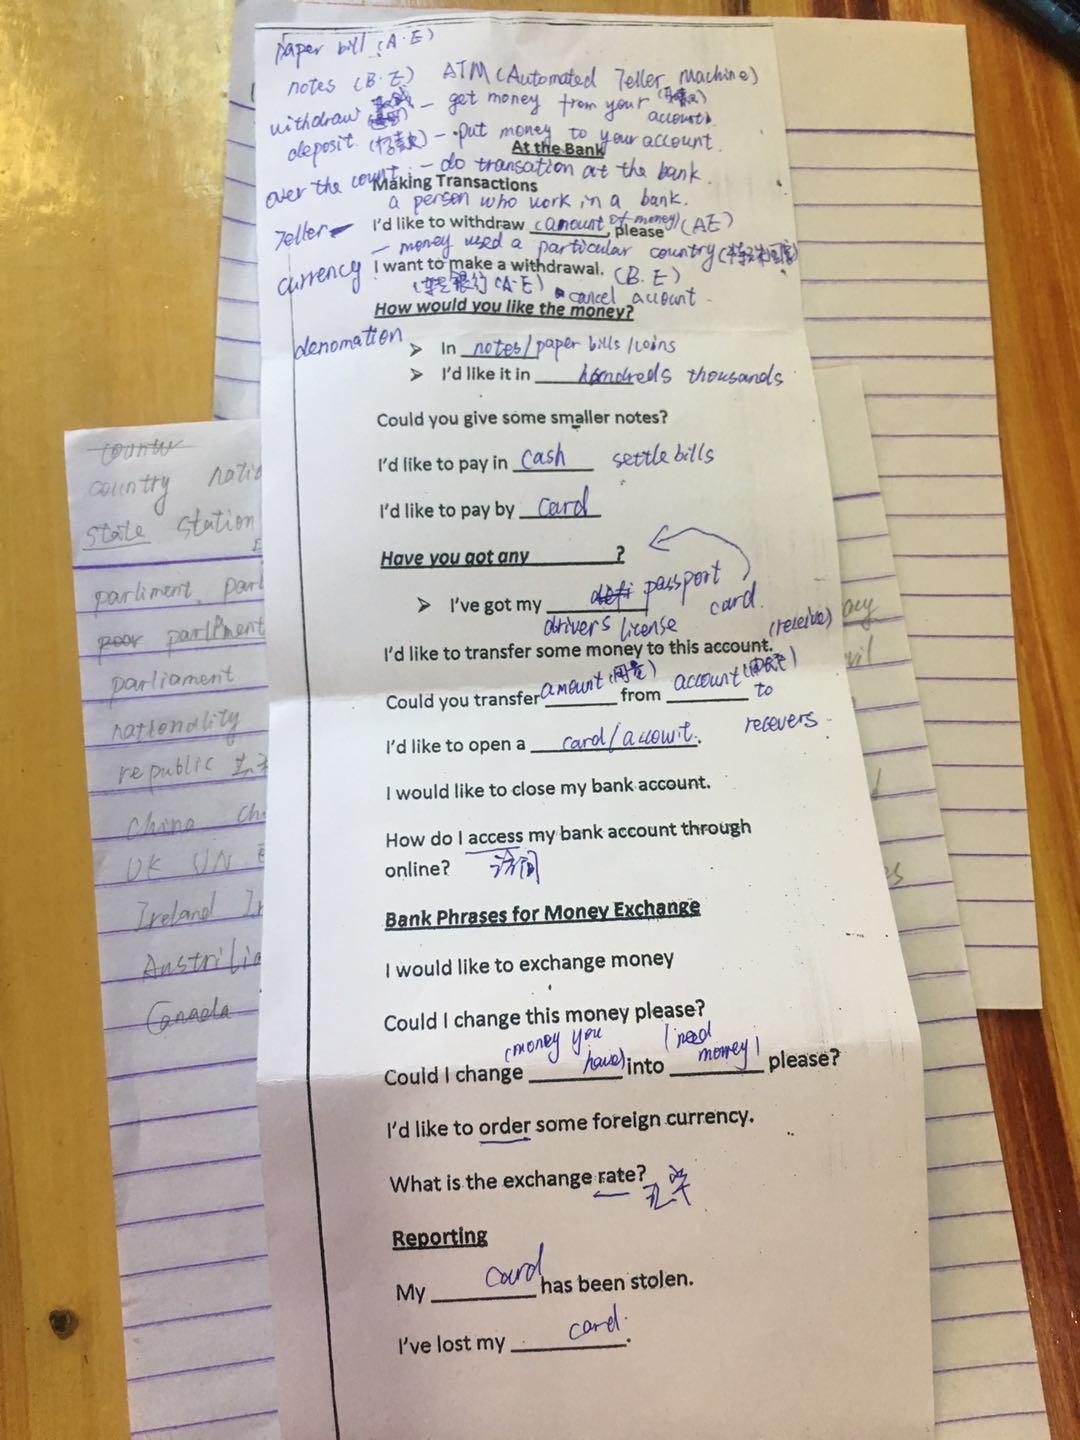 paper bill (A.E)
notes (B.E) ATM (Automated Teller Machine)
withdraw — get money from your account.
deposit (存款) — put money to your account.
At the Bank
over the count — do transation at the bank.
Making Transactions
a person who work in a bank.
I'd like to withdraw (amount of money), please (AE)
Teller
— money used a particular country
currency
I want to make a withdrawal. (B.E)
(A.E) cancel account.
How would you like the money?
denomation
➢ In notes/paper bills/coins
➢ I'd like it in hondreds thousands
Could you give some smaller notes?
I'd like to pay in cash settle bills
I'd like to pay by card
Have you got any ________?
➢ I've got my passport card.
drivers license
I'd like to transfer some money to this account. (receive)
Could you transfer amount from account to
recevers.
I'd like to open a card/account.
I would like to close my bank account.
How do I access my bank account through
online? 访问
Bank Phrases for Money Exchange
I would like to exchange money
Could I change this money please?
Could I change (money you have) into (need money) please?
I'd like to order some foreign currency.
What is the exchange rate? 汇率
Reporting
My card has been stolen.
I've lost my card.
country natio
state station
parliment. parl
poor parliment
parliament
nationality
republic
China Ch
UK UN
Ireland Ir
Austrilia
Canada